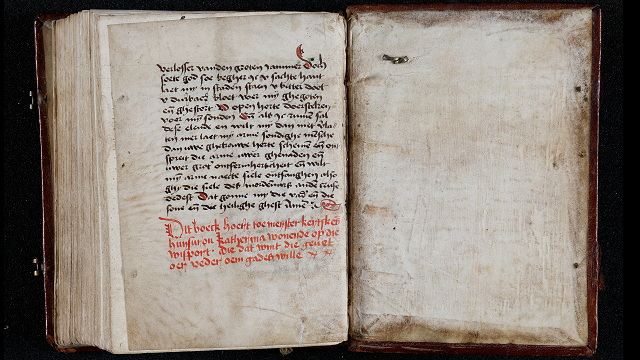 verlosser vanden groten jammer Och
soete god soe begher ic v sachte hant
laet my in staden staen v bitter doot
v duerbaer bloet voer my ghegoten
en ghestort v open herte doersteken
voer my sonden En als ic rumen sal
dese elende en wilt my dan niet verla
ten mer laet my arme sondighe mensche
dan uwe ghetrouwe herte schemen en ont
spreit die arme uwer ghenaden en
uwer groter ontfermherticheit en wilt
my arme naecte siele ontfanghen also
ghi die siele des mordenaers ande cruse
dedest Dat gonne my die vader en die
sone en die heilighe gheest Amen
Dit boeck hoert toe meyster kerstkens
huysurou katherina wonende op die
wijsport die dat vint die gevet
oer veder oem gades wille